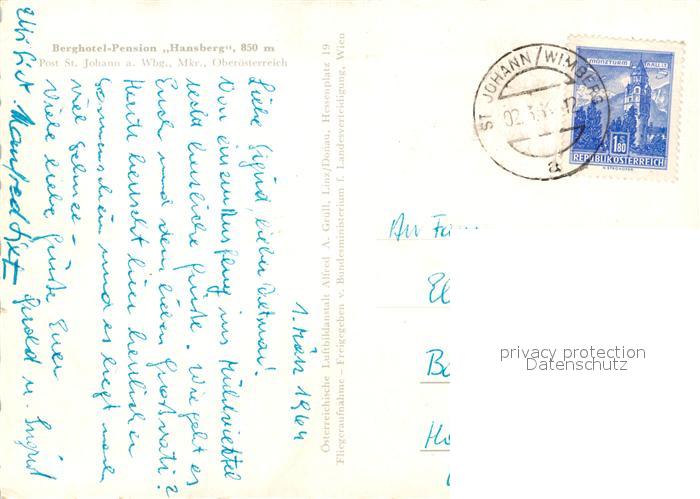 Berghotel-Pension „Hansberg“, 850 m
Post St. Johann a. Wbg., Mkr., Oberösterreich
1. März 1964
Liebe Sigrid, lieber Detmar!
Von einem Ausflug ins Mühlviertel
recht herzliche Grüße. Wie geht es
Euch und dem lieben Großvati?
Heute herrscht hier herrlicher
Sonnenschein und es liegt noch
viel Schnee -
Viele liebe Grüße Euer
Gerold u. Ingrid
Manfred
Österreichische Luftbildanstalt Alfred A. Grüll, Linz/Donau, Hessenplatz 19
Fliegeraufnahme — Freigegeben v. Bundesministerium f. Landesverteidigung, Wien
ST JOHANN / WIMBERG
02.3.
a
MÜNZTURM HALL I/T
1.80
REPUBLIK ÖSTERREICH
An Fa
El
Ba
Ho
privacy protection
Datenschutz